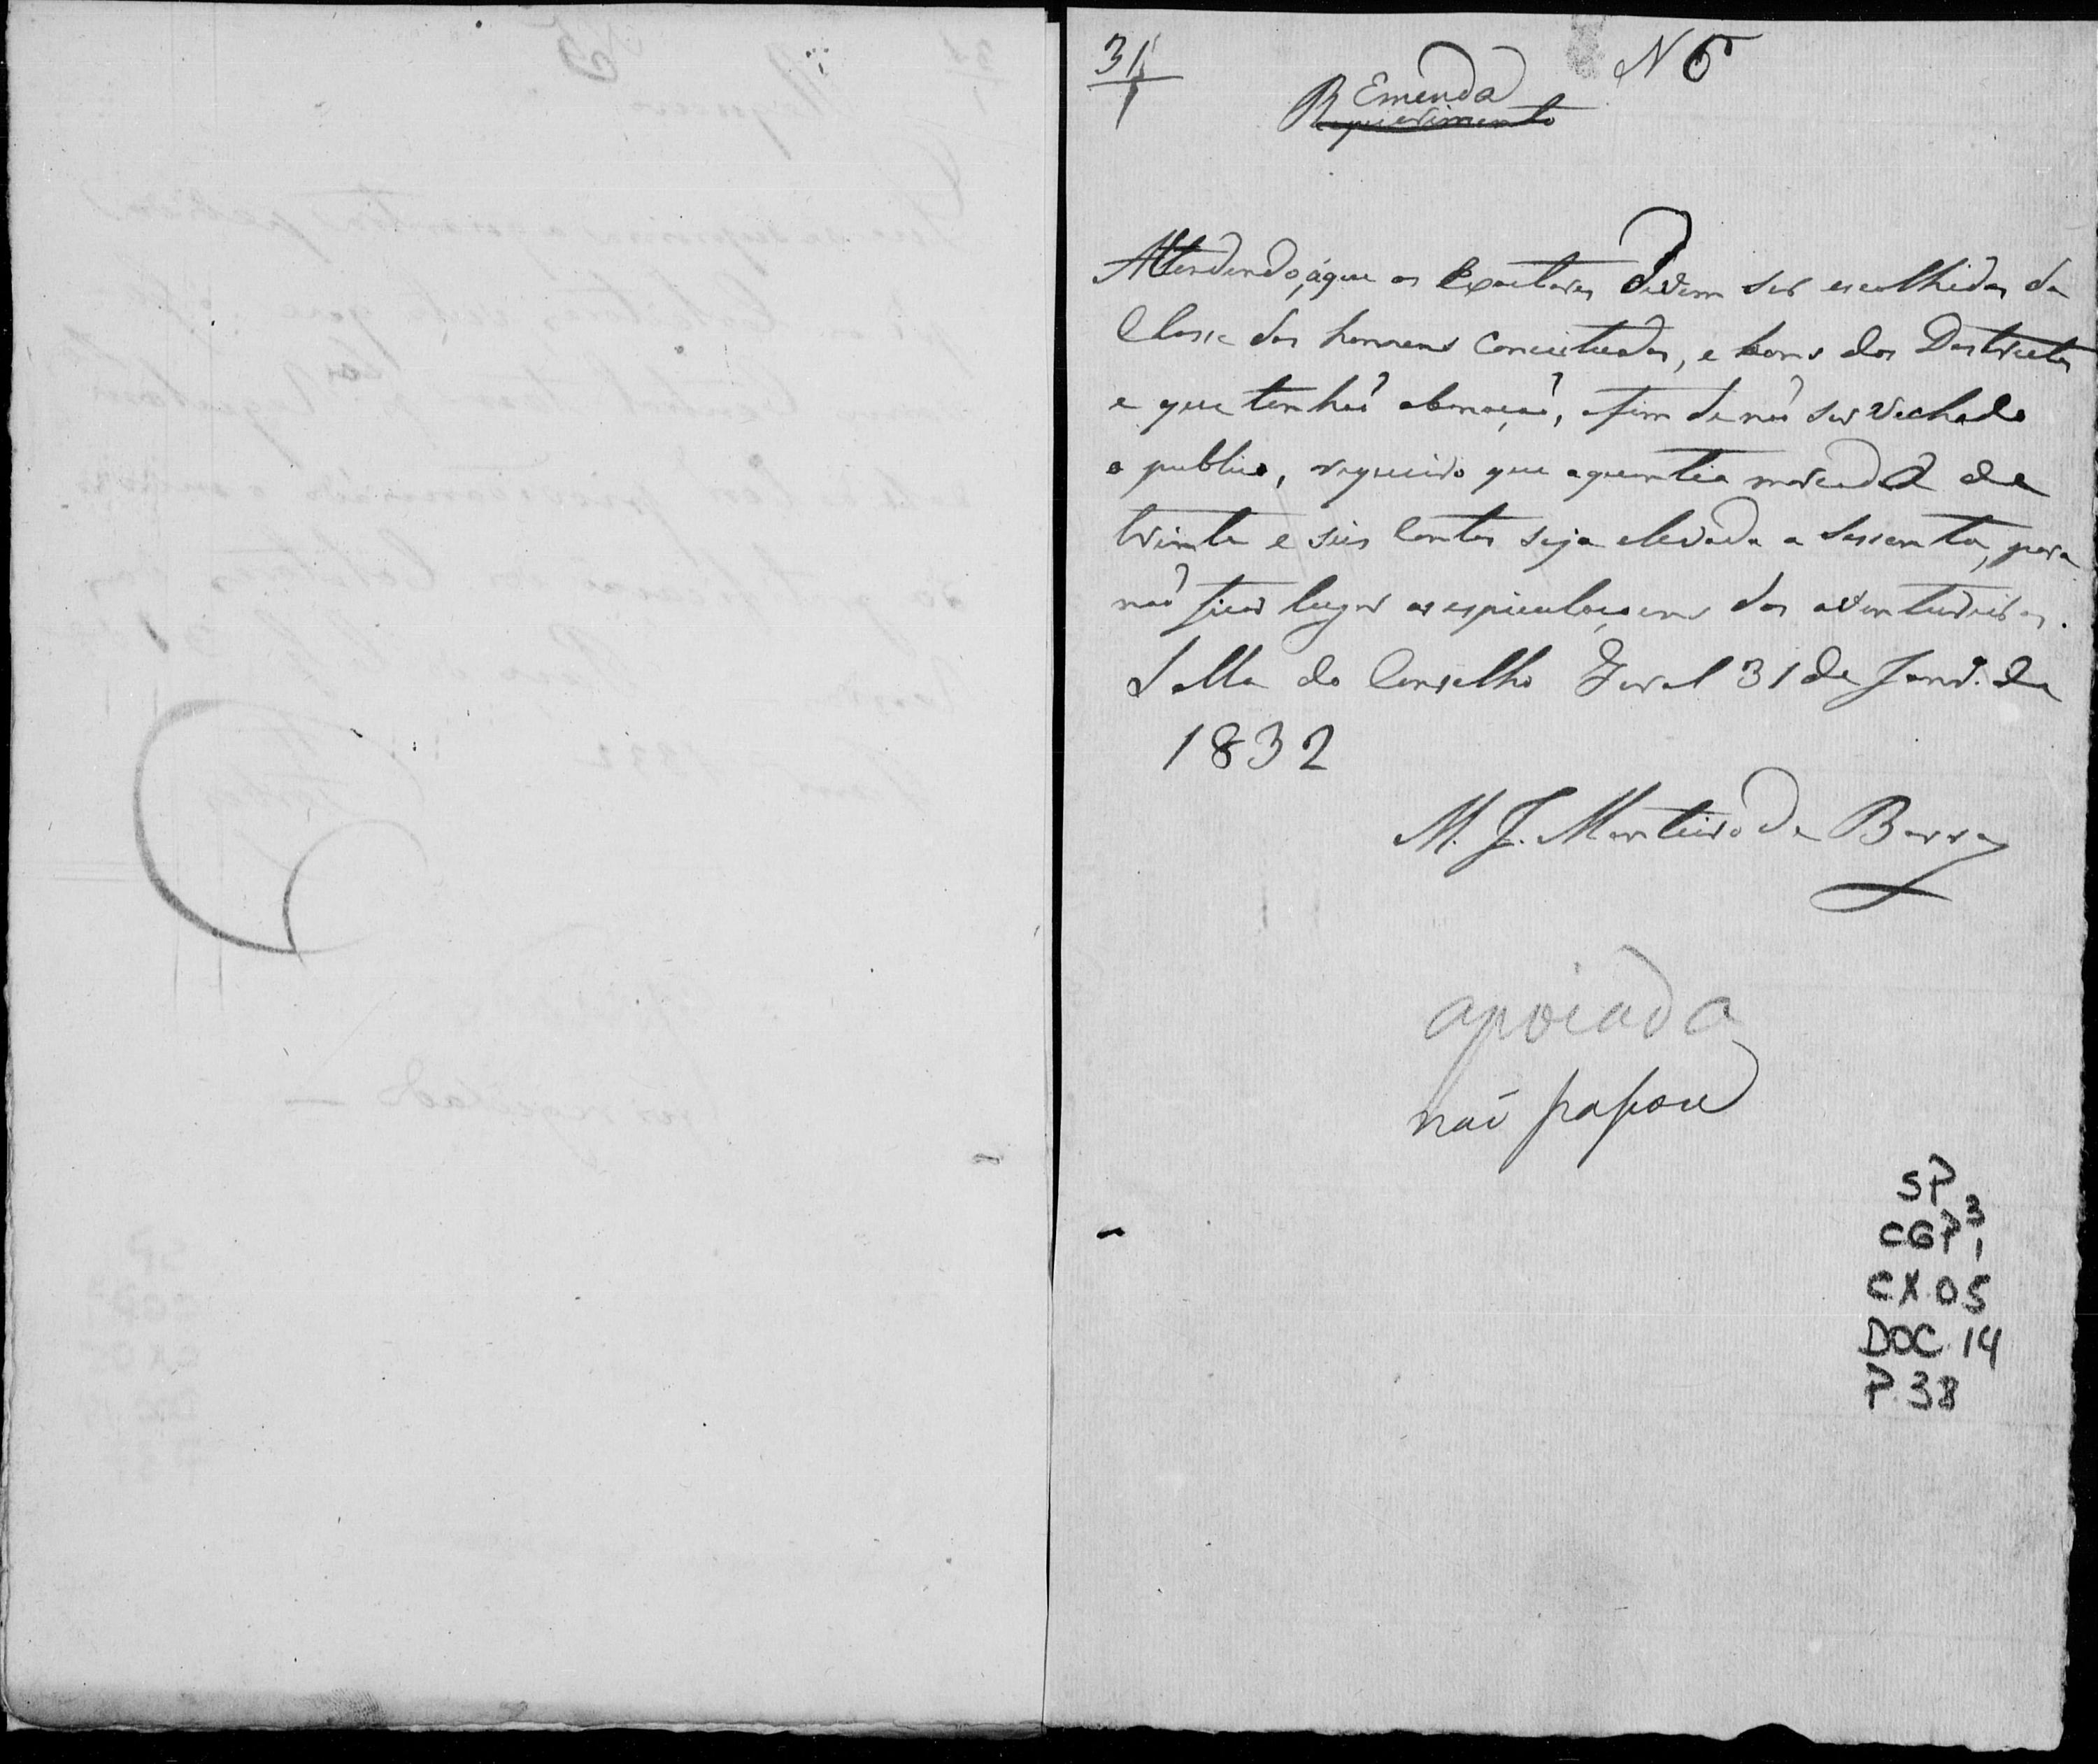 31
1
N 6
Emenda
Requerimento
Attendendo, áque os Exactores devem ser escolhidos da
Classe dos homens Conceituados, e bons dos Destrictos
e que tenhaõ abonaçaõ, afim de naõ ser vechado
o publico, requeiro que aquantia marcada de
trinta e seis Contos seja elevada a sessenta, para
naõ ficar lugar as espiculaçoens dos aventureiros.
Salla do Conselho Geral 31 de Janr.º de
1832
M. J. Monteiro de Barros
apoiada
naõ passou
SP
CGP3
1
CX.05
DOC.14
P.38